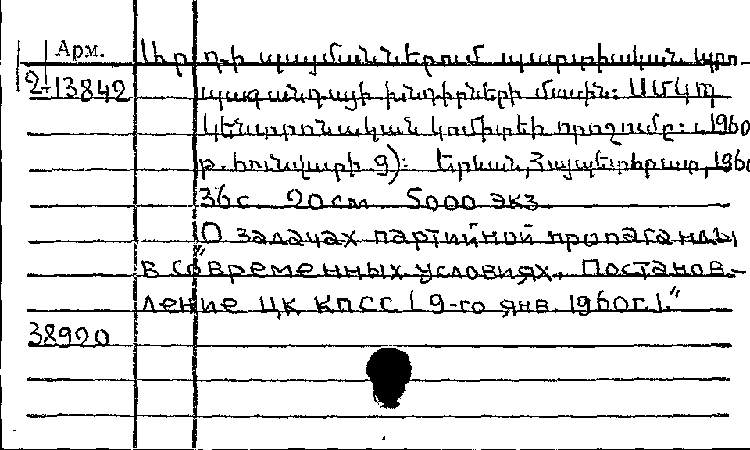 Арм.
Ներկա պայմաններում պարտիական պրո-
2-13842 պագանդայի խնդիրների մասին: ՍՄԿՊ
Կենտրոնական կոմիտեի որոշումը: (1960
թ. հունվարի 9): Երևան, Հայպետհրատ, 196
36 с. 20 см 5000 экз.
"О задачах партийной пропаганды
в современных условиях. Постанов-
ление ЦК КПСС [9-го янв. 1960г.]."
38920